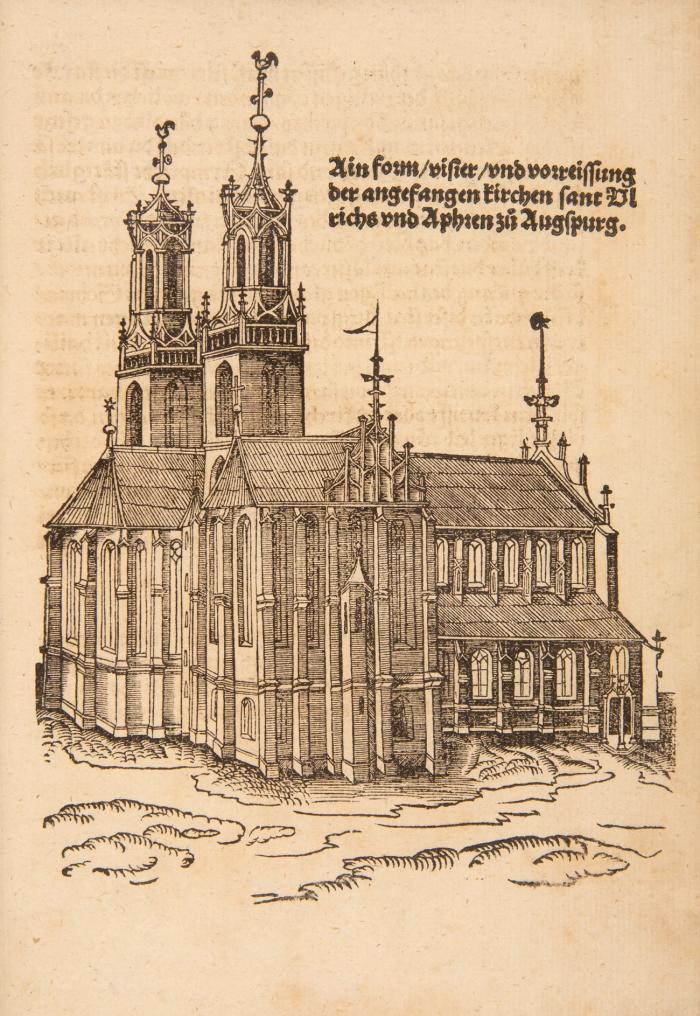 Ain form/visier/vnd vorreissung
der angefangen kirchen sant Vl
richs vnd Aphren zů Augspurg.